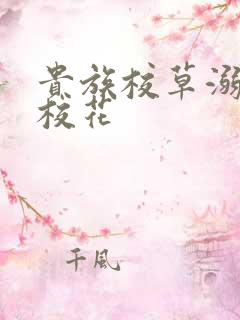 貴族校草溺
校花
千風